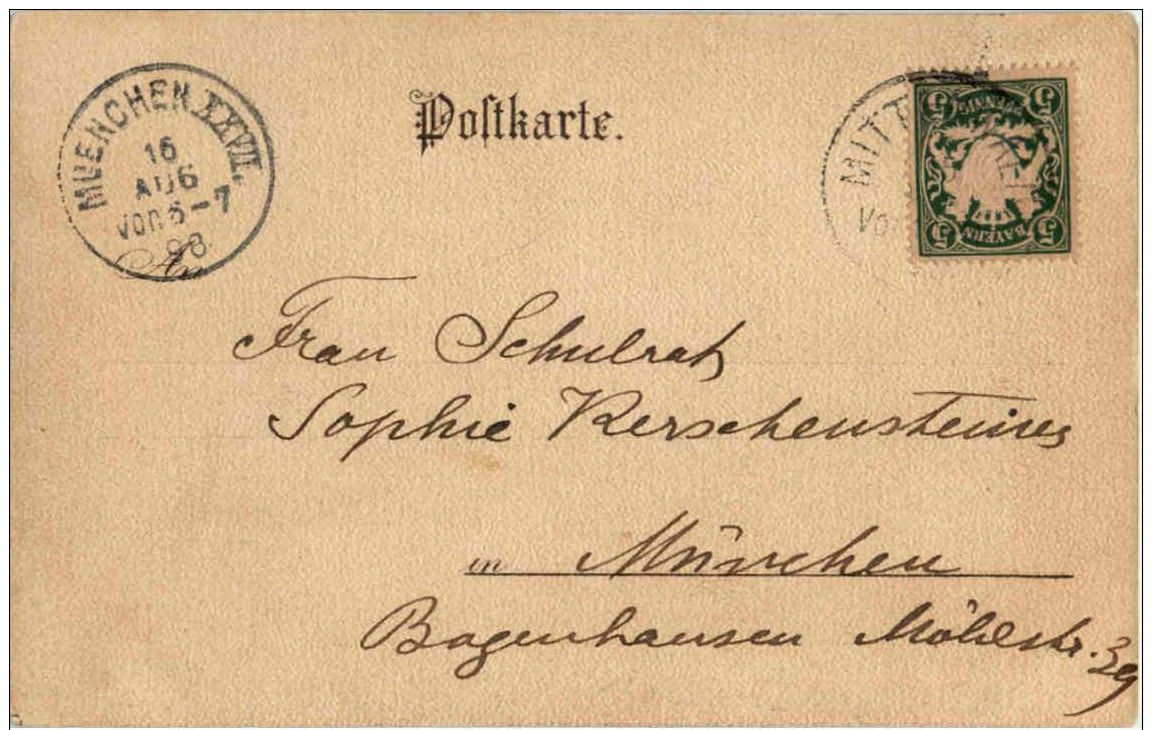 Postkarte.
MUENCHEN XXVII.
16
AUG
VOR 6-7
98
MITT
VO
5 PFENNIG 5
5 BAYERN 5
Frau Schulrat
Sophie Kerschensteiner
in München
Bogenhausen Möhlstr.